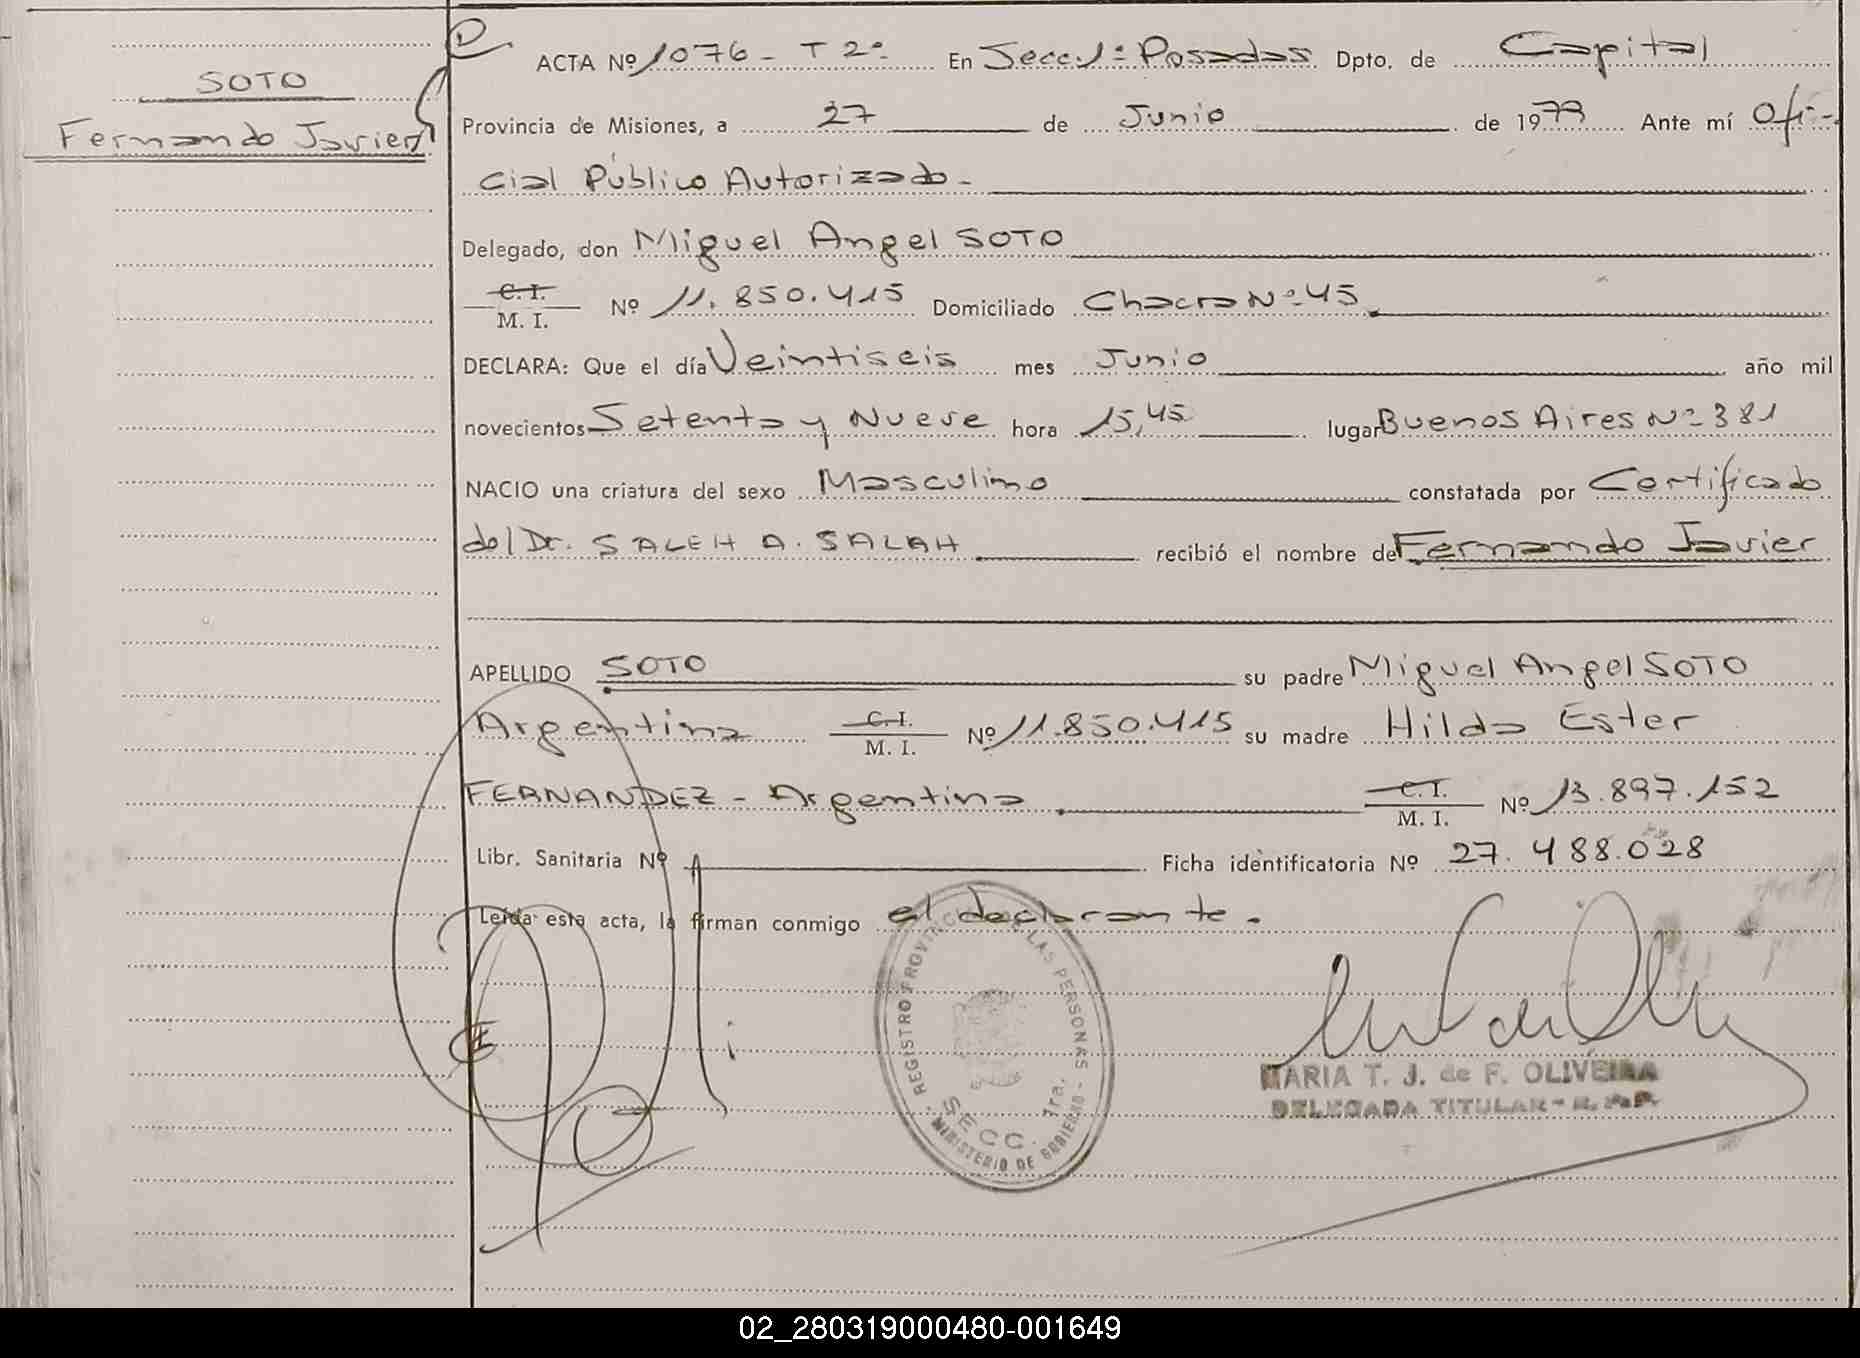 SOTO
Fernando Javier
ACTA Nº 1076 - T 2º En Secc. 1ª Posadas Dpto. de Capital
Provincia de Misiones, a 27 de Junio de 1979 Ante mí Ofi-
cial Público Autorizado -
Delegado, don Miguel Angel SOTO
C. I.
M. I. Nº 11.850.415 Domiciliado Chacra Nº 45
DECLARA: Que el día Veintiseis mes Junio año mil
novecientos Setenta y Nueve hora 15,45 lugar Buenos Aires Nº 381
NACIO una criatura del sexo Masculino constatada por Certificado
del Dr. SALEH A. SALAH recibió el nombre de Fernando Javier
APELLIDO SOTO su padre Miguel Angel SOTO
Argentino C. I.
M. I. Nº 11.850.415 su madre Hilda Ester
FERNANDEZ - Argentina C. I.
M. I. Nº 13.897.152
Libr. Sanitaria Nº Ficha identificatoria Nº 27.488.028
Leída esta acta, la firman conmigo el declarante.
REGISTRO PROVINCIAL DE LAS PERSONAS -
SECC. 1ra.
MINISTERIO DE GOBIERNO
MARIA T. J. de F. OLIVEIRA
DELEGADA TITULAR - R. P. P.
02_280319000480-001649